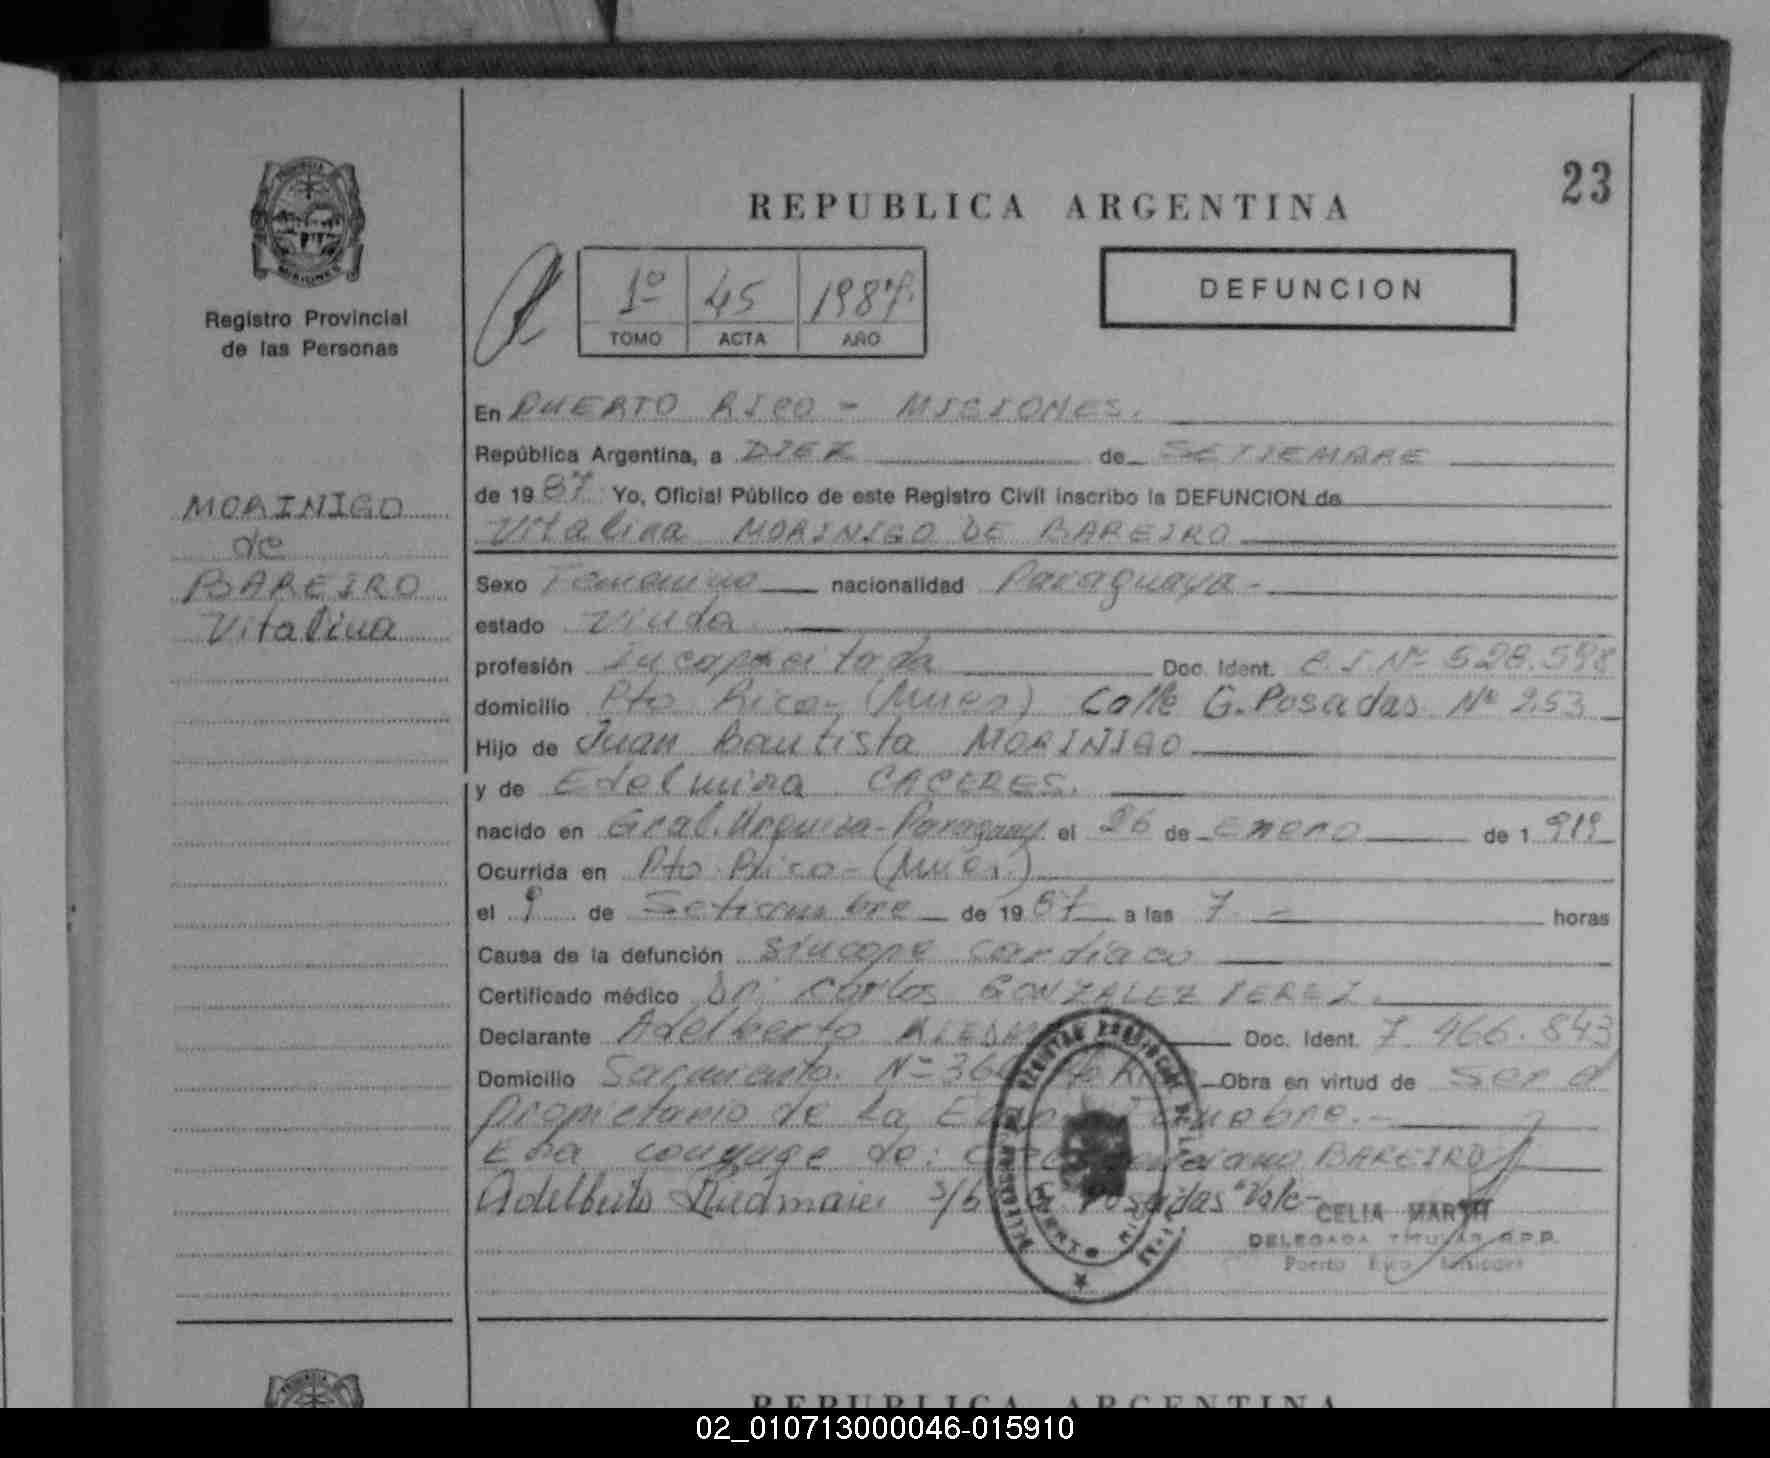 23
REPUBLICA ARGENTINA
Registro Provincial
de las Personas
1º 45 1987
TOMO ACTA AÑO
DEFUNCION
MORINIGO
de
BAREIRO
Vitalina
En PUERTO RICO - MISIONES.
República Argentina, a DIEZ de SETIEMBRE
de 1987 Yo, Oficial Público de este Registro Civil inscribo la DEFUNCION de
Vitalina MORINIGO DE BAREIRO
Sexo Femenino nacionalidad Paraguaya -
estado Viuda
profesión incapacitada Doc. Ident. C.I. Nº 528.598
domicilio Pto Rico - (Mnes) Calle G. Posadas Nº 253
Hijo de Juan Bautista MORINIGO
y de Edelmira CACERES.
nacido en Gral. Urquiza - Paraguay el 26 de enero de 1919
Ocurrida en Pto Rico - (Mnes.)
el 9 de Setiembre de 1987 a las 7 - horas
Causa de la defunción sincope cardiaco
Certificado médico Dr. Carlos GONZALEZ PEREZ.
Declarante Adelberto Doc. Ident. 7.466.843
Domicilio Sarmiento Nº Obra en virtud de ser el
propietario de la
Era conyuge de: BAREIRO
Adelberto Riedmaier s/b Posadas "Vale -
CELIA
DELEGADA TITULAR R.P.P.
Puerto Rico Misiones
REPUBLICA ARGENTINA
02_010713000046-015910